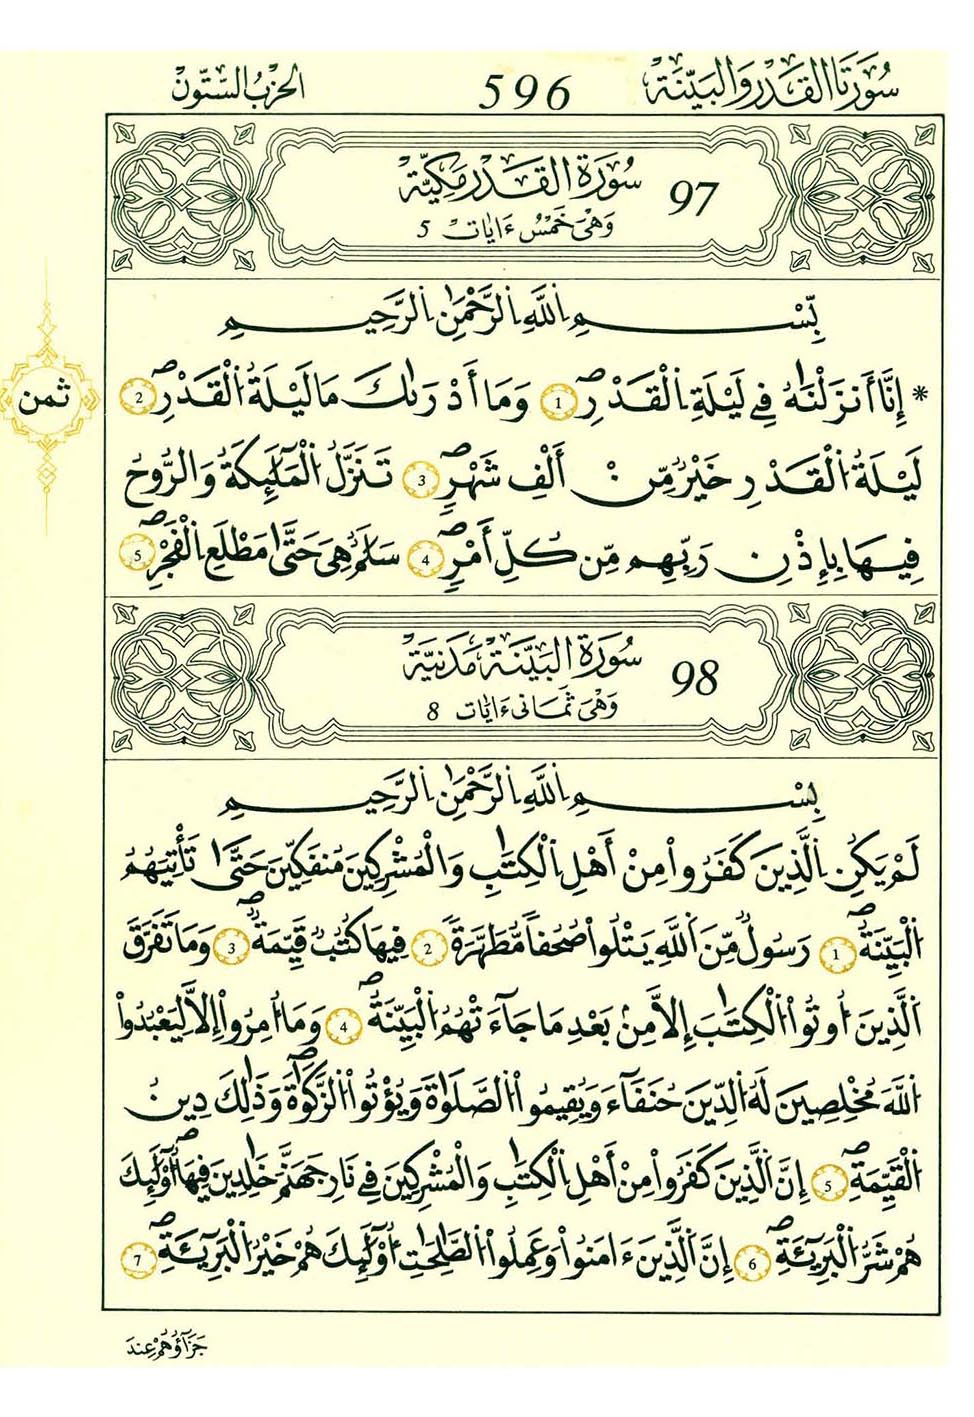 سُورَتَا الْقَدْرِ وَالْبَيِّنَةِ 596 الحِزْبُ السِّتُّونَ
سُورَةُ الْقَدْرِ مَكِّيَّة 97
وَهْيَ خَمْسُ ءَايَات 5
بِسْمِ اللَّهِ الرَّحْمَٰنِ الرَّحِيمِ
ثمن
* إِنَّا أَنزَلْنَٰهُ فِے لَيْلَةِ اِ۬لْقَدْرِۖ 1 وَمَا أَدْرَىٰكَ مَا لَيْلَةُ اُ۬لْقَدْرِۖ 2
لَيْلَةُ اُ۬لْقَدْرِ خَيْرٌ مِّنْ أَلْفِ شَهْرٖۖ 3 تَنَزَّلُ اُ۬لْمَلَٰٓئِكَةُ وَالرُّوحُ
فِيهَا بِإِذْنِ رَبِّهِم مِّن كُلِّ أَمْرٖۖ 4 سَلَٰمٌ هِىَ حَتَّىٰ مَطْلَعِ اِ۬لْفَجْرِۖ 5
سُورَةُ الْبَيِّنَة مَدَنِيَّة 98
وَهْيَ ثَمَانِى ءَايَات 8
بِسْمِ اللَّهِ الرَّحْمَٰنِ الرَّحِيمِ
لَمْ يَكُنِ اِ۬لَّذِينَ كَفَرُواْ مِنْ أَهْلِ اِ۬لْكِتَٰبِ وَالْمُشْرِكِينَ مُنفَكِّينَ حَتَّىٰ تَأْتِيَهُمُ
اُ۬لْبَيِّنَةُۖ 1 رَسُولٌ مِّنَ اَ۬للَّهِ يَتْلُواْ صُحُفاً مُّطَهَّرَةٗ 2 فِيهَا كُتُبٌ قَيِّمَةٌۖ 3 وَمَا تَفَرَّقَ
اَ۬لَّذِينَ أُوتُواْ اُ۬لْكِتَٰبَ إِلَّا مِنۢ بَعْدِ مَا جَآءَتْهُمُ اُ۬لْبَيِّنَةُۖ 4 وَمَا أُمِرُواْ إِلَّا لِيَعْبُدُواْ
اُ۬للَّهَ مُخْلِصِينَ لَهُ اُ۬لدِّينَ حُنَفَآءَ وَيُقِيمُواْ اُ۬لصَّلَوٰةَ وَيُؤْتُواْ اُ۬لزَّكَوٰةَۖ وَذَٰلِكَ دِينُ
اُ۬لْقَيِّمَةِۖ 5 إِنَّ اَ۬لَّذِينَ كَفَرُواْ مِنْ أَهْلِ اِ۬لْكِتَٰبِ وَالْمُشْرِكِينَ فِے نَارِ جَهَنَّمَ خَٰلِدِينَ فِيهَاۖ أُوْلَٰٓئِكَ
هُمْ شَرُّ اُ۬لْبَرِيٓـَٔةِۖ 6 إِنَّ اَ۬لَّذِينَ ءَامَنُواْ وَعَمِلُواْ اُ۬لصَّٰلِحَٰتِ أُوْلَٰٓئِكَ هُمْ خَيْرُ اُ۬لْبَرِيٓـَٔةِۖ 7
جَزَآؤُهُمْ عِندَ